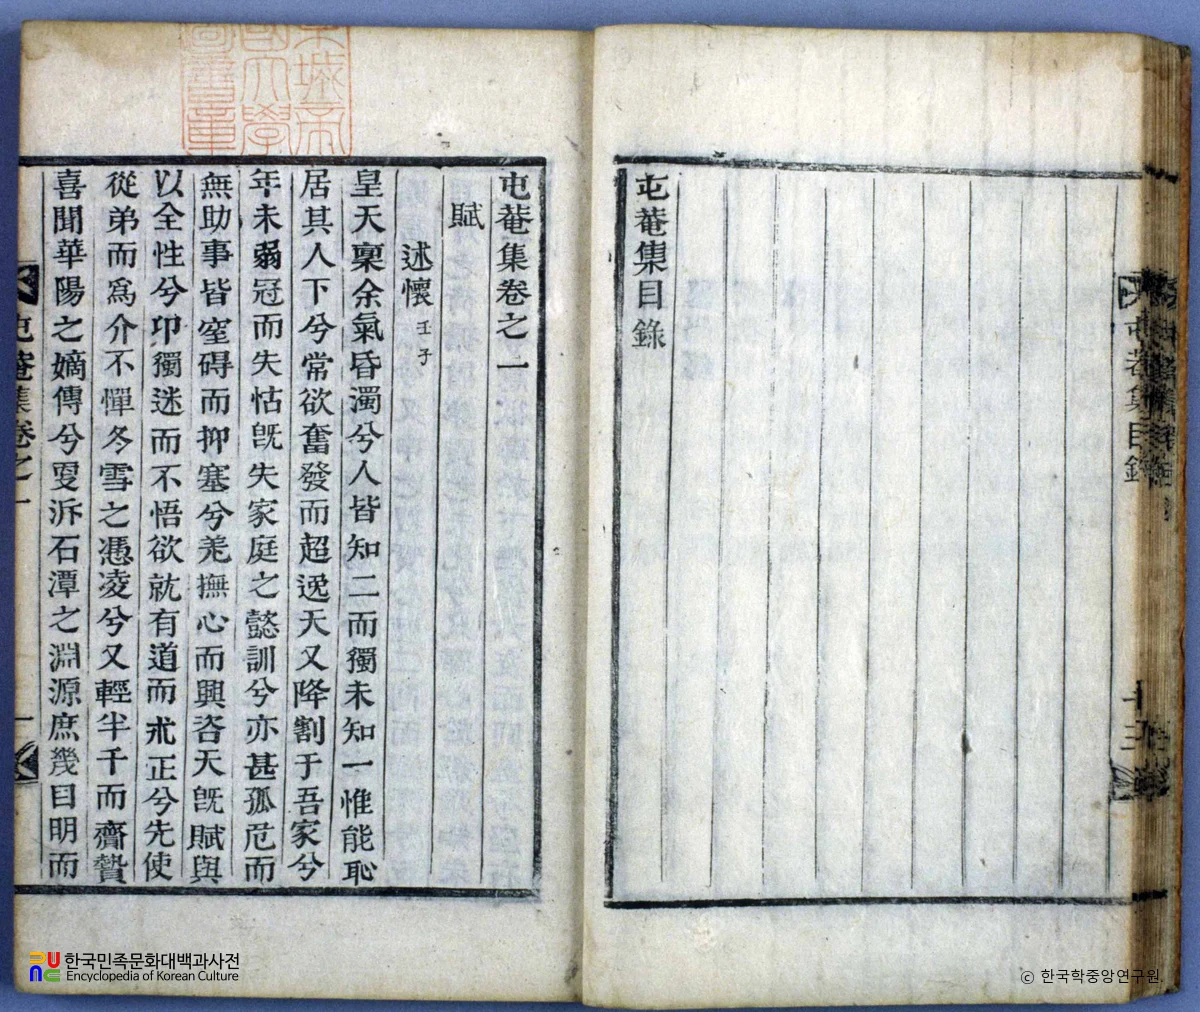 屯菴集目錄
屯菴集目錄
十三
屯菴集卷之一
賦
述懷 壬子
皇天稟余氣昏濁兮人皆知二而獨未知一惟能恥
居其人下兮常欲奮發而超逸天又降割于吾家兮
年未弱冠而失怙旣失家庭之懿訓兮亦甚孤危而
無助事皆窒碍而抑塞兮羌撫心而興咨天旣賦與
以全性兮卬獨迷而不悟欲就有道而求正兮先使
從弟而爲介不憚冬雪之馮凌兮又輕半千而齎贄
喜聞華陽之嫡傳兮更泝石潭之淵源庶幾目明而
屯菴集卷之一
一
帝國大學圖書章
한국민족문화대백과사전
Encyclopedia of Korean Culture
© 한국학중앙연구원